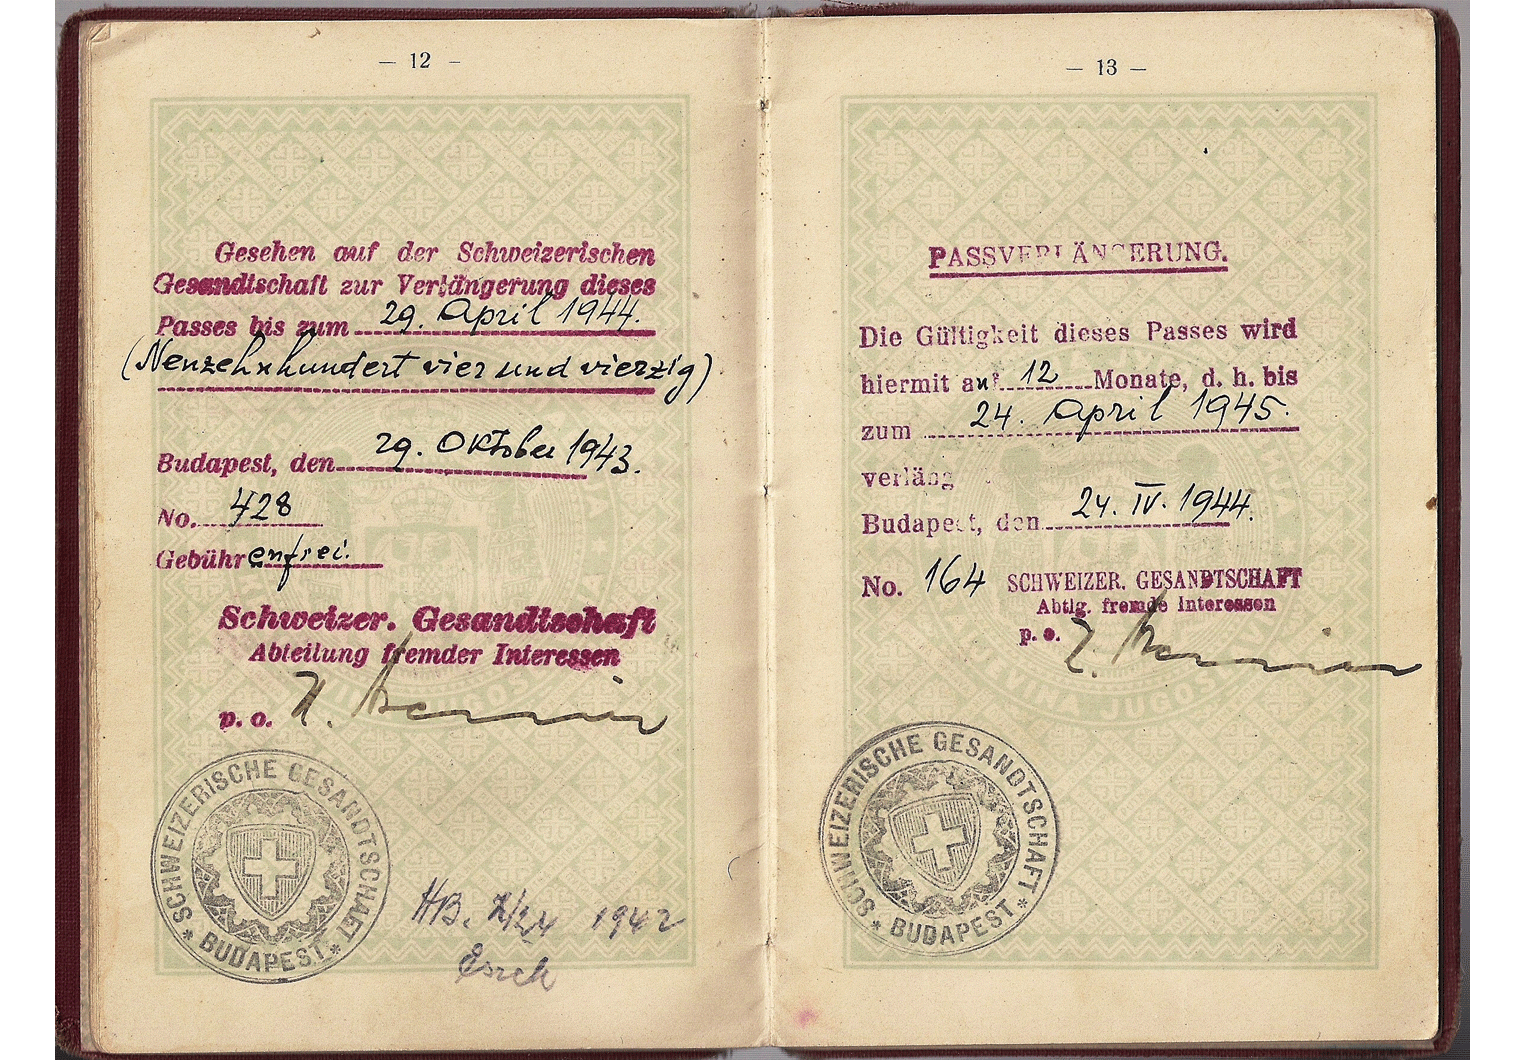 — 12 —
Gesehen auf der Schweizerischen
Gesandtschaft zur Verlängerung dieses
Passes bis zum 29. April 1944.
(Neunzehnhundert vier und vierzig)
Budapest, den 29. Oktober 1943.
No. 428
Gebührenfrei.
Schweizer. Gesandtschaft
Abteilung fremder Interessen
p. o.
SCHWEIZERISCHE GESANDTSCHAFT
* BUDAPEST *
HB. 1942
— 13 —
PASSVERLÄNGERUNG.
Die Gültigkeit dieses Passes wird
hiermit auf 12 Monate, d. h. bis
zum 24. April 1945.
verläng
Budapest, den 24. IV. 1944.
No. 164 SCHWEIZER. GESANDTSCHAFT
Abtlg. fremde Interessen
p. o.
SCHWEIZERISCHE GESANDTSCHAFT
* BUDAPEST *